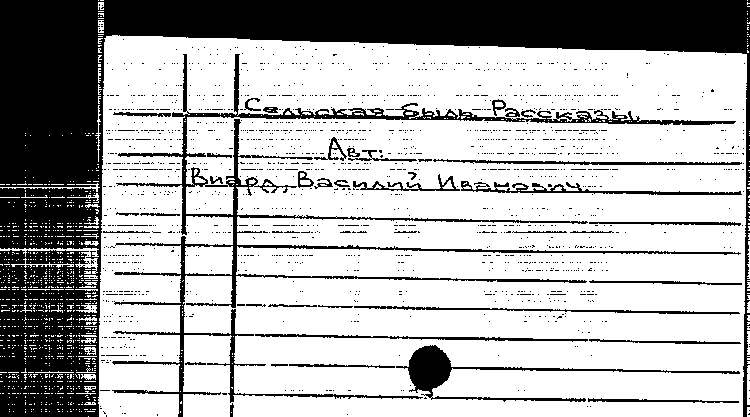 Сельская быль. Рассказы.
Авт.:
Виард, Василий Иванович.